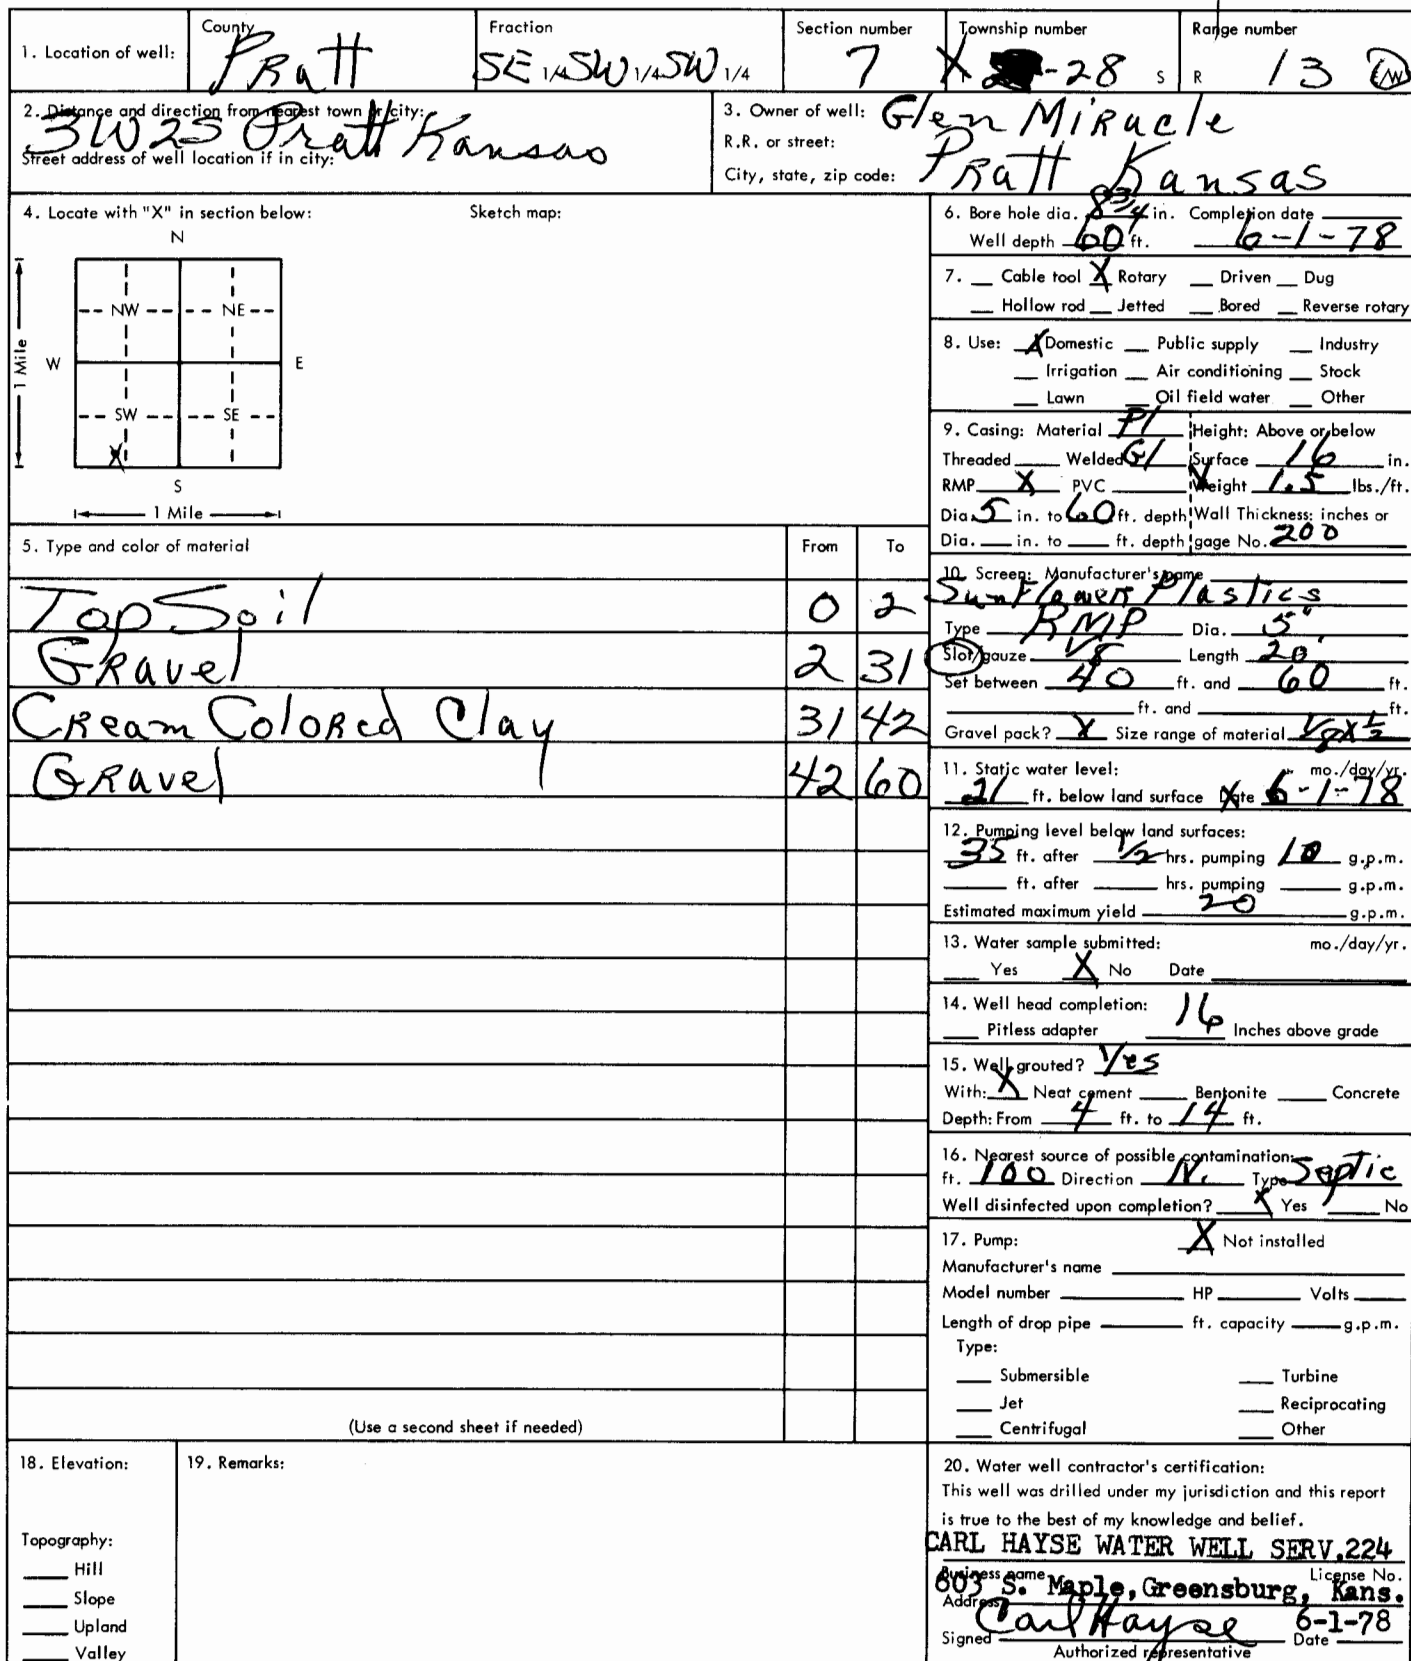 1. Location of well: County Pratt Fraction SE 1/4 SW 1/4 SW 1/4 Section number 7 Township number -28 S Range number R 13 E/W
2. Distance and direction from nearest town or city:
3W 2S Pratt Kansas
Street address of well location if in city:
3. Owner of well: Glen Miracle
R.R. or street:
City, state, zip code: Pratt Kansas
4. Locate with "X" in section below: Sketch map:
N
NW NE
W E
1 Mile
SW SE
X
S
1 Mile
5. Type and color of material From To
Top Soil 0 2
Gravel 2 31
Cream Colored Clay 31 42
Gravel 42 60
(Use a second sheet if needed)
6. Bore hole dia. 8 3/4 in. Completion date
Well depth 60 ft. 6-1-78
7. __ Cable tool X Rotary __ Driven __ Dug
__ Hollow rod __ Jetted __ Bored __ Reverse rotary
8. Use: X Domestic __ Public supply __ Industry
__ Irrigation __ Air conditioning __ Stock
__ Lawn __ Oil field water __ Other
9. Casing: Material Pl Height: Above or below
Threaded __ Welded Gl Surface 16 in.
RMP X PVC __ Weight 1.5 lbs./ft.
Dia. 5 in. to 60 ft. depth Wall Thickness: inches or
Dia. __ in. to __ ft. depth gage No. 200
10. Screen: Manufacturer's name
Sunflower Plastics
Type RMP Dia. 5"
Slot/gauze 1/8 Length 20'
Set between 40 ft. and 60 ft.
__ ft. and __ ft.
Gravel pack? X Size range of material 1/8 x 1/2
11. Static water level: mo./day/yr.
21 ft. below land surface Date 6-1-78
12. Pumping level below land surfaces:
35 ft. after 1/2 hrs. pumping 10 g.p.m.
__ ft. after __ hrs. pumping __ g.p.m.
Estimated maximum yield 20 g.p.m.
13. Water sample submitted: mo./day/yr.
__ Yes X No Date __
14. Well head completion:
__ Pitless adapter 16 Inches above grade
15. Well grouted? Yes
With: X Neat cement __ Bentonite __ Concrete
Depth: From 4 ft. to 14 ft.
16. Nearest source of possible contamination:
ft. 100 Direction N. Type Septic
Well disinfected upon completion? X Yes __ No
17. Pump: X Not installed
Manufacturer's name __
Model number __ HP __ Volts __
Length of drop pipe __ ft. capacity __ g.p.m.
Type:
__ Submersible __ Turbine
__ Jet __ Reciprocating
__ Centrifugal __ Other
18. Elevation:
Topography:
__ Hill
__ Slope
__ Upland
__ Valley
19. Remarks:
20. Water well contractor's certification:
This well was drilled under my jurisdiction and this report
is true to the best of my knowledge and belief.
CARL HAYSE WATER WELL SERV. 224
Business name License No.
603 S. Maple, Greensburg, Kans.
Address
Signed Carl Hayse Date 6-1-78
Authorized representative